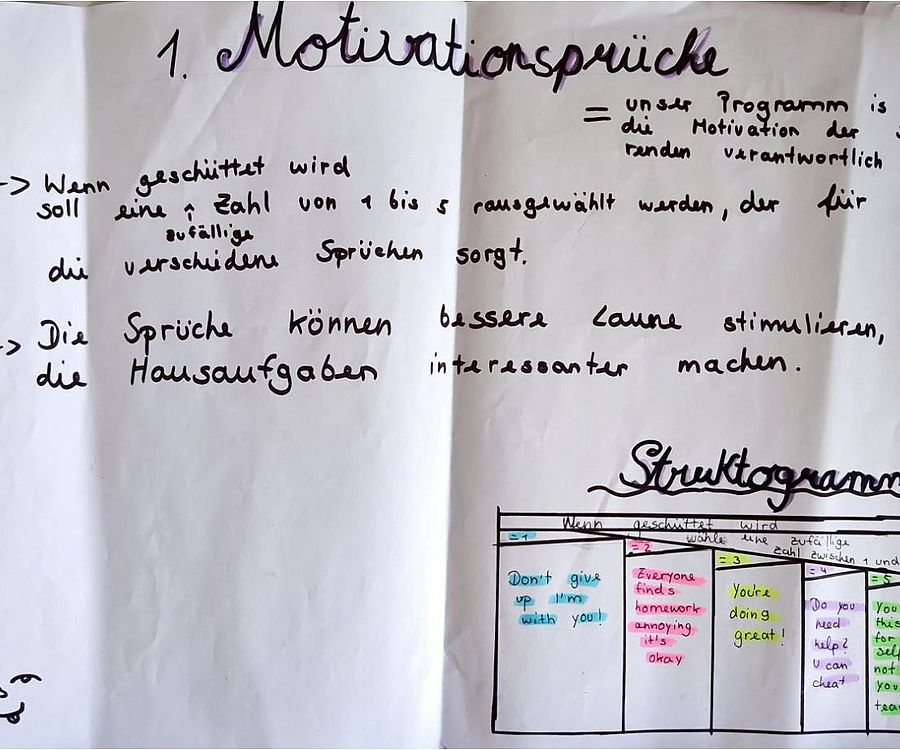 1. Motivationssprüche
= unser Programm is
die Motivation der
renden verantwortlich
-> Wenn geschüttet wird
soll eine ↑ Zahl von 1 bis 5 rausgewählt werden, der für
zufällige
die verscheidene Sprüchen sorgt.
-> Die Sprüche können bessere Laune stimulieren,
die Hausaufgaben interessanter machen.
Struktogramm
Wenn geschüttet wird
wähle eine zufällige
zahl zwischen 1 und
= 1
Don't give
up I'm
with you!
= 2
Everyone
finds
homework
annoying
it's
okay
= 3
You're
doing
great!
= 4
Do you
need
help?
U can
cheat
= 5
You
this
for
self
not
you
tea